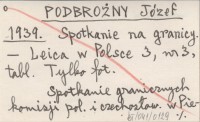 PODBROŻNY Józef
1939. Spotkanie na granicy.
— Leica w Polsce 3, nr 3,
tabl. Tylko fot.
Spotkanie granicznych
komisji pol. i czechosłow. w Pie-